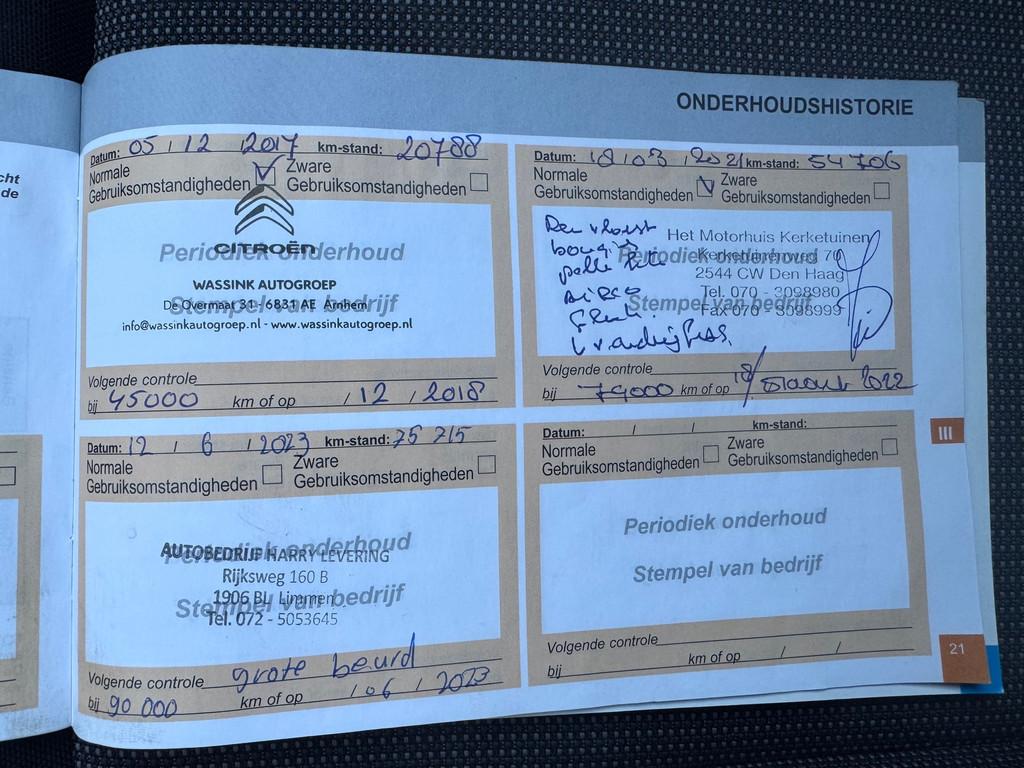 cht
de
ONDERHOUDSHISTORIE
Datum: 05 / 12 / 2017 km-stand: 20788
Normale Gebruiksomstandigheden
Zware Gebruiksomstandigheden
CITROËN
Periodiek onderhoud
WASSINK AUTOGROEP
De Overmaat 31 - 6831 AE Arnhem
Stempel van bedrijf
info@wassinkautogroep.nl - www.wassinkautogroep.nl
Volgende controle
bij 45000 km of op / 12 / 2018
Datum: 18 / 03 / 2021 km-stand: 54706
Normale Gebruiksomstandigheden
Zware Gebruiksomstandigheden
bougies
Het Motorhuis Kerketuinen
Periodiek onderhoud
Kerketuinenweg 70
2544 CW Den Haag
Tel. 070 - 3098980
Stempel van bedrijf
Fax 070 - 3098999
Volgende controle
bij 74000 km of op 18/ 2022
Datum: 12 / 6 / 2023 km-stand: 75 715
Normale Gebruiksomstandigheden
Zware Gebruiksomstandigheden
Periodiek onderhoud
AUTOBEDRIJF HARRY LEVERING
Rijksweg 160 B
1906 BL Limmen
Stempel van bedrijf
Tel. 072 - 5053645
Volgende controle grote beurd
bij 90 000 km of op / 06 / 2023
Datum: / / km-stand:
Normale Gebruiksomstandigheden
Zware Gebruiksomstandigheden
Periodiek onderhoud
Stempel van bedrijf
Volgende controle
bij km of op / /
III
21